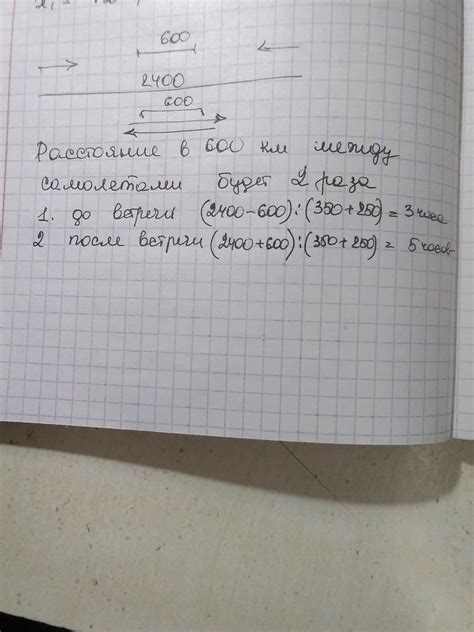 600
2400
600
Расстояние в 600 км между
самолетами будет 2 раза
1. до встречи (2400-600):(350+250)=3часа
2 после встречи(2400+600):(350+250)= 5часов